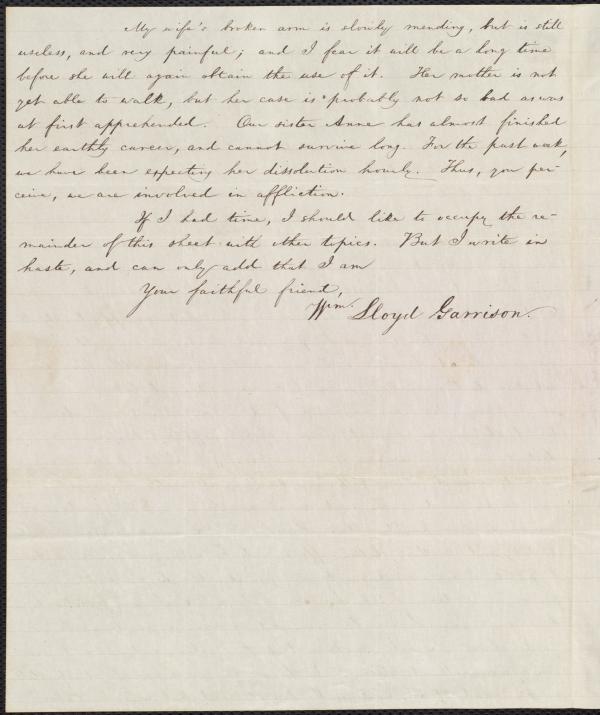 My wife's broken arm is slowly mending, but is still
useless, and very painful; and I fear it will be a long time
before she will again obtain the use of it. Her mother is not
yet able to walk, but her case is probably not so bad as was
at first apprehended. Our sister Anne has almost finished
her earthly career, and cannot survive long. For the past week,
we have been expecting her dissolution hourly. Thus, you per-
ceive, we are involved in affliction.
If I had time, I should like to occupy the re-
mainder of this sheet with other topics. But I write in
haste, and can only add that I am
Your faithful friend,
Wm. Lloyd Garrison.